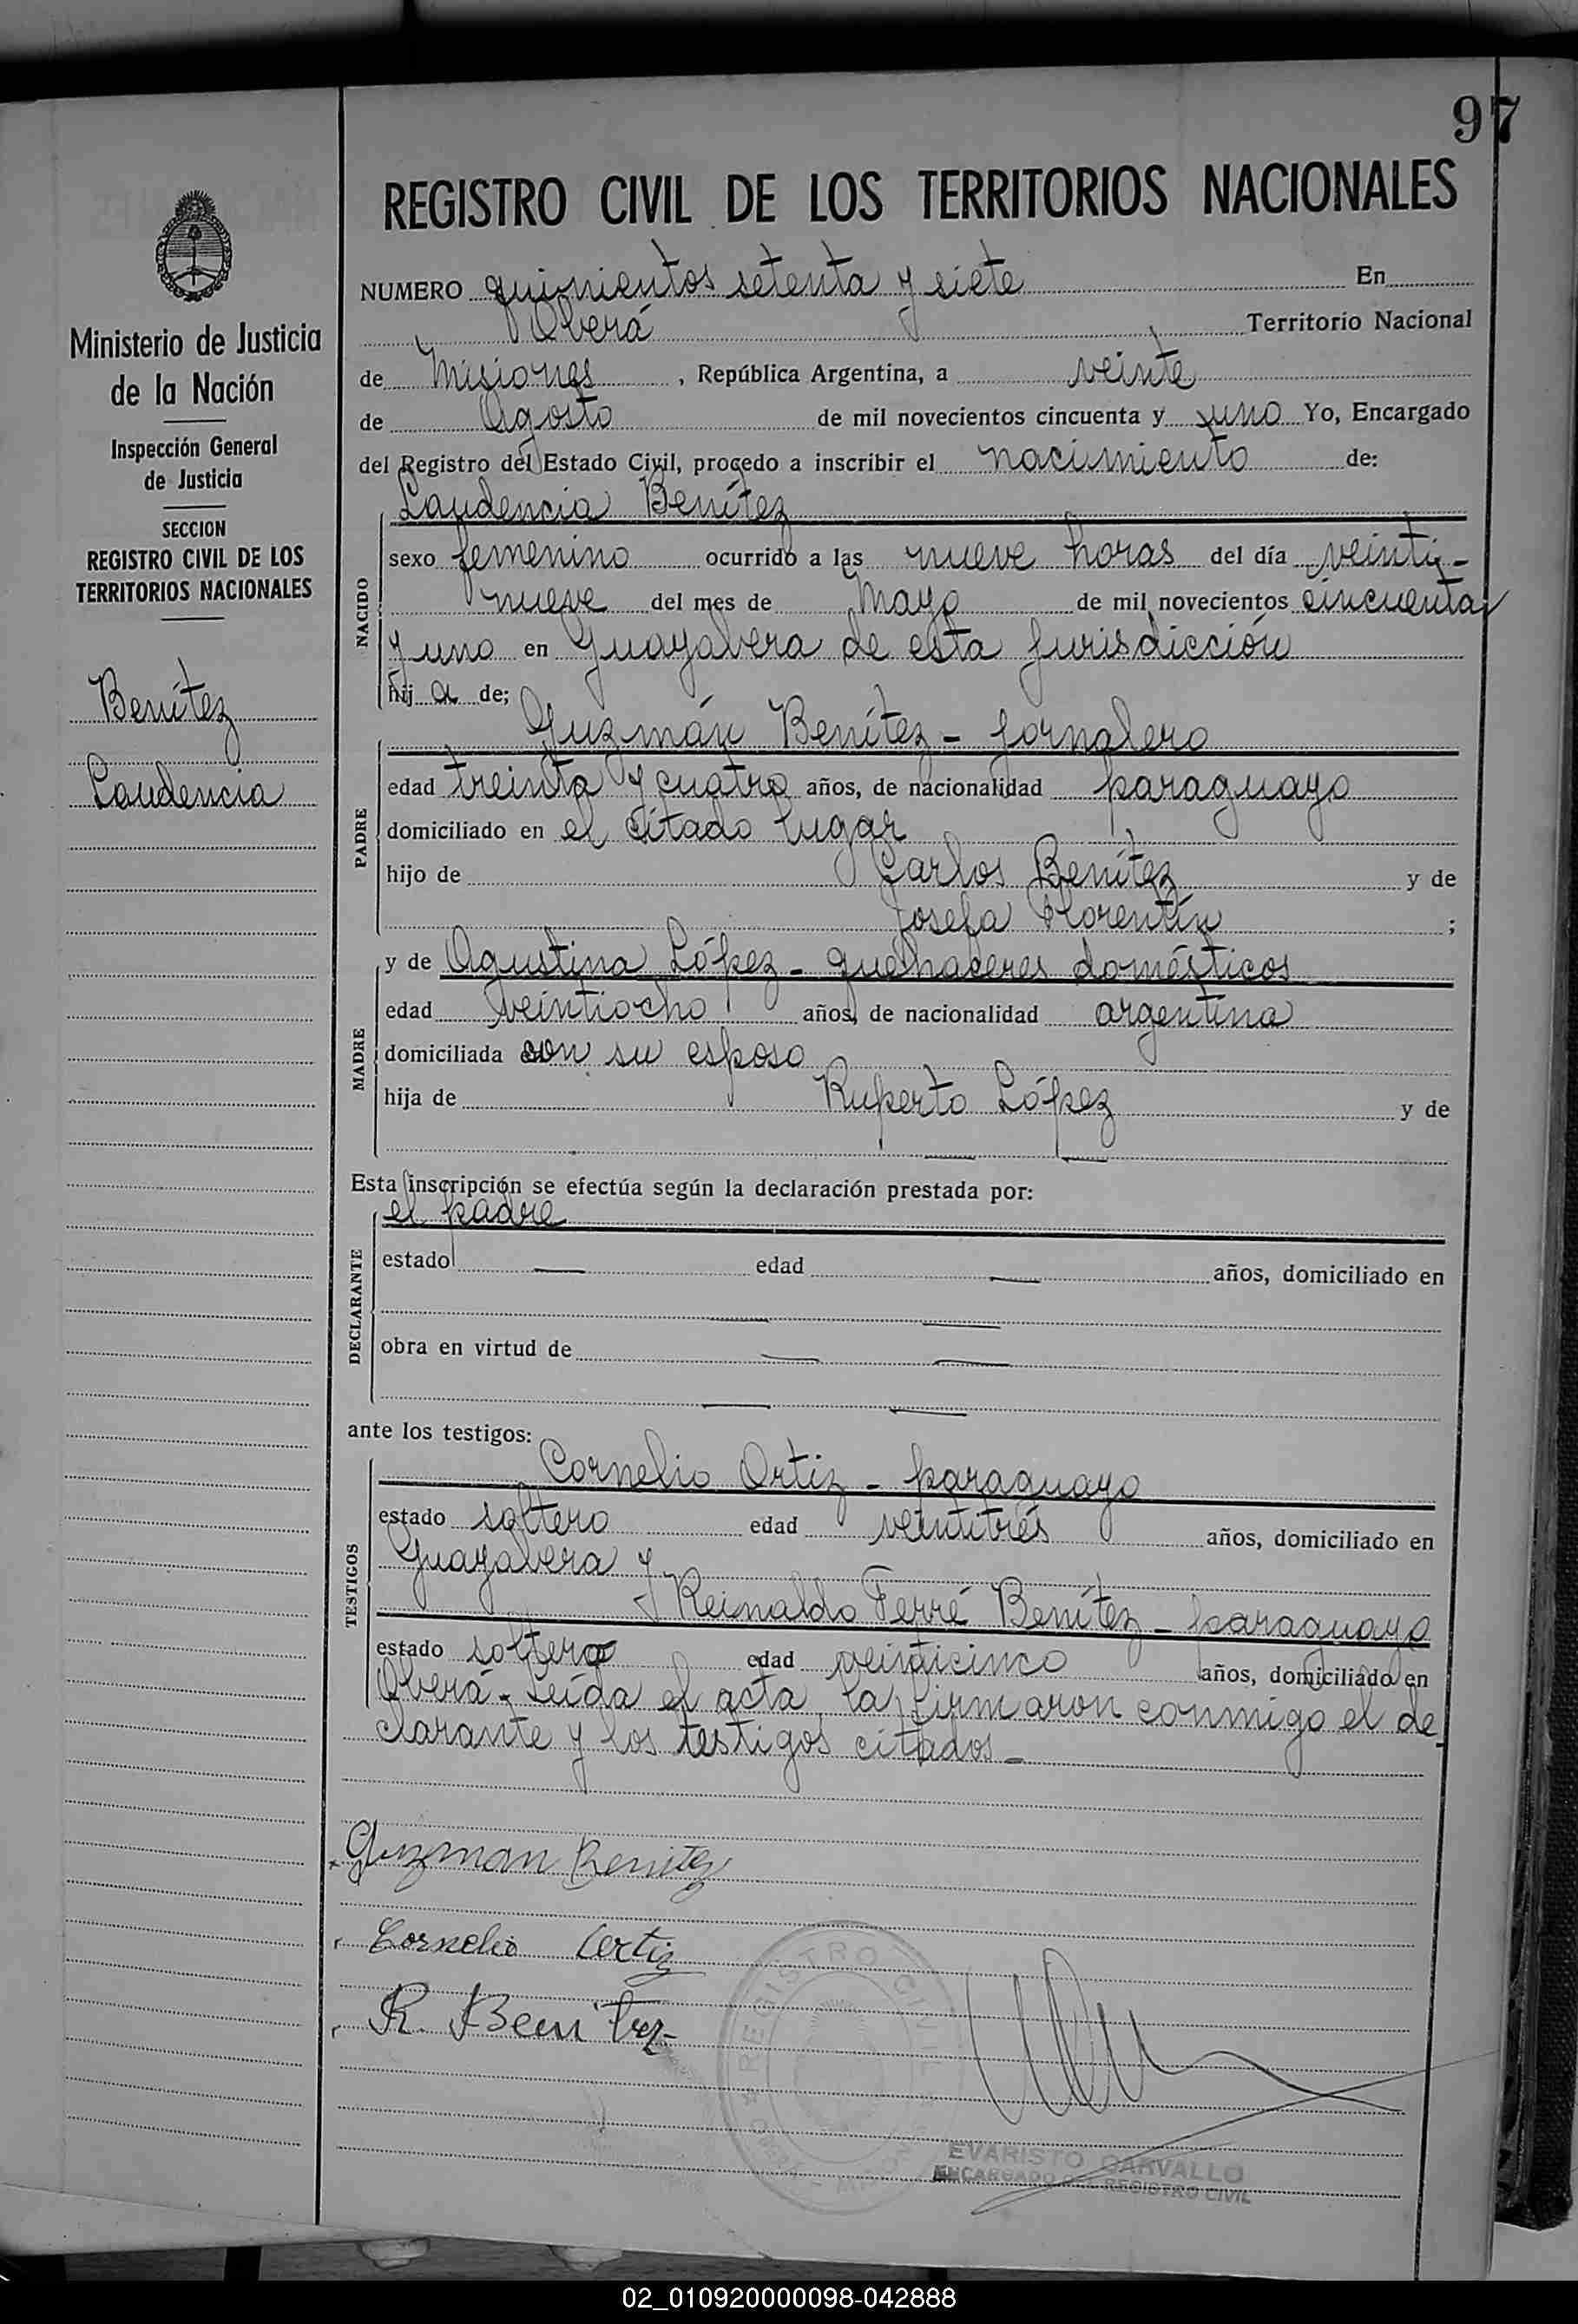 97
REGISTRO CIVIL DE LOS TERRITORIOS NACIONALES
NUMERO quinientos setenta y siete En
Oberá Territorio Nacional
de Misiones, República Argentina, a veinte
de Agosto de mil novecientos cincuenta y uno Yo, Encargado
del Registro del Estado Civil, procedo a inscribir el nacimiento de:
Laudencia Benítez
NACIDO
sexo femenino ocurrido a las nueve horas del día veinti-
nueve del mes de Mayo de mil novecientos cincuenta
y uno en Guayabera de esta jurisdicción
hija de;
Guzmán Benítez - jornalero
PADRE
edad treinta y cuatro años, de nacionalidad paraguayo
domiciliado en el citado lugar
hijo de Carlos Benítez y de
Josefa Florentín ;
y de Agustina López - quehaceres domésticos
MADRE
edad veintiocho años, de nacionalidad argentina
domiciliada con su esposo
hija de Ruperto López y de
Esta inscripción se efectúa según la declaración prestada por:
el padre
DECLARANTE
estado edad años, domiciliado en
obra en virtud de
ante los testigos:
Cornelio Ortiz - paraguayo
TESTIGOS
estado soltero edad veintitrés años, domiciliado en
Guayabera y
Reinaldo Ferré Benítez - paraguayo
estado soltero edad veinticinco años, domiciliado en
Oberá - Leída el acta, la firmaron conmigo el de-
clarante y los testigos citados -
Guzman Benitez
Cornelio Ortiz
R. Benitez
REGISTRO CIVIL
EVARISTO CARVALLO
ENCARGADO DEL REGISTRO CIVIL
Ministerio de Justicia
de la Nación
Inspección General
de Justicia
SECCION
REGISTRO CIVIL DE LOS
TERRITORIOS NACIONALES
Benítez
Laudencia
02_010920000098-042888